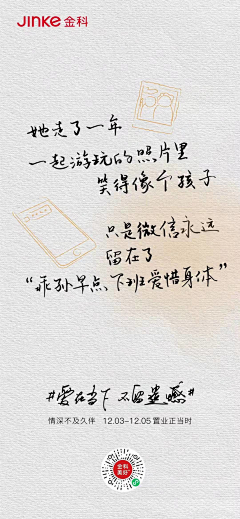 JINKE 金科
她走了一年
一起游玩的照片里
笑得像个孩子
只是微信永远
留在了
“乖孙早点下班爱惜身体”
#爱在当下 不留遗憾#
情深不及久伴 12.03-12.05 置业正当时
金科
美好